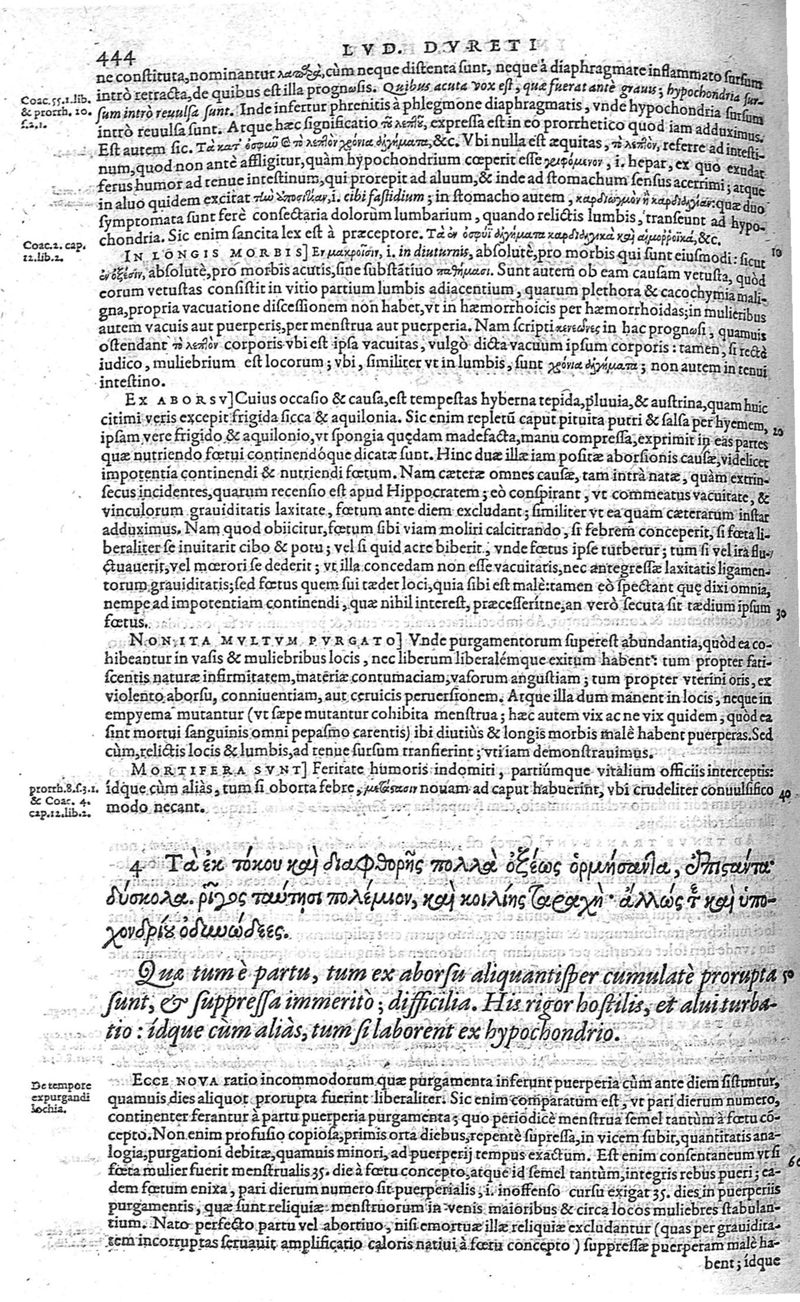 444
LVD. DVRETI
ne constituta, nominantur λαπαρὰ, cùm neque distenta sunt, neque à diaphragmate inflammato sursum
Coac. 55. 1. lib.
& prorrh. 10.
s. 2. 1.
intrò retracta, de quibus est illa prognosis. Quibus acuta vox est, quæ fuerat antè grauis; hypochondria sur-
sum intrò reuulsa sunt. Inde infertur phrenitis à phlegmone diaphragmatis, vnde hypochondria sursum
intrò reuulsa sunt. Atque hæc significatio τοῦ λεπτοῦ, expressa est in eo prorrhetico quod iam adduximus.
Est autem sic. Τὰ κατ' ὀσφιῦ ἐς τὸ λεπτὸν χρόνια ἀλγήματα, &c. Vbi nulla est æquitas, τοῦ λεπτοῦ, referre ad intesti-
num, quod non antè affligitur, quàm hypochondrium cœperit esse, i. hepar, ex quo exudat
ferus humor ad tenue intestinum, qui prorepit ad aluum, & inde ad stomachum sensus acerrimi; atque
in aluo quidem excitat, i. cibi fastidium; in stomacho autem, καρδιωγμὸν ἢ καρδιαλγίαν: quæ duo
symptomata sunt ferè consectaria dolorum lumbarium, quando relictis lumbis, transeunt ad hypo-
Coac. 2. cap.
12. lib. 2.
chondria. Sic enim sancita lex est à præceptore. Τὰ ἐν ὀσφύϊ ἀλγήματα καρδιαλγικὰ καὶ αἱμορροϊκὰ, &c.
IN LONGIS MORBIS] Εν μακροῖσιν, i. in diuturnis, absolutè, pro morbis qui sunt eiusmodi: sicut
10
ἐν ὀξέσιν, absolutè, pro morbis acutis, sine substātiuo παθήμασι. Sunt autem ob eam causam vetusta, quòd
eorum vetustas consistit in vitio partium lumbis adiacentium, quarum plethora & cacochymia mali-
gna, propria vacuatione discessionem non habet, vt in hæmorrhoicis per hæmorrhoidas; in mulieribus
autem vacuis aut puerperis, per menstrua aut puerperia. Nam scripti κενεῶνες in hac prognosi, quamuis
ostendant τὸ λεπτὸν corporis vbi est ipsa vacuitas, vulgò dicta vacuum ipsum corporis: tamen, si rectè
iudico, muliebrium est locorum; vbi, similiter vt in lumbis, sunt χρόνια ἀλγήματα; non autem in tenui
intestino.
EX ABORSV] Cuius occasio & causa, est tempestas hyberna tepida, pluuia, & austrina, quam huic
citimi veris excepit frigida sicca & aquilonia. Sic enim repletū caput pituita putri & salsa per hyemem,
ipsam vere frigido & aquilonio, vt spongia quędam madefacta, manu compressa, exprimit in eas partes
20
quæ nutriendo fœtui continendóque dicatæ sunt. Hinc duæ illæ iam positæ aborsionis causæ, videlicet
impotentia continendi & nutriendi fœtum. Nam cæteræ omnes causæ, tam intrà natæ, quàm extrin-
secus incidentes, quarum recensio est apud Hippocratem; eò conspirant, vt commeatus vacuitate, &
vinculorum grauiditatis laxitate, fœtum ante diem excludant; similiter vt ea quam cæterarum instar
adduximus. Nam quod obiicitur, fœtum sibi viam moliri calcitrando, si febrem conceperit, si fœta li-
beraliter se inuitarit cibo & potu; vel si quid acre biberit, vnde fœtus ipse turbetur; tum si vel ira flu-
ctuauerit, vel mœrori se dederit; vt illa concedam non esse vacuitatis, nec antegressæ laxitatis ligamen-
torum grauiditatis; sed fœtus quem sui tædet loci, quia sibi est malè: tamen eò spectant quę dixi omnia,
nempe ad impotentiam continendi, quæ nihil interest, præcesseritne, an verò secuta sit tædium ipsum
30
fœtus.
NON ITA MVLTVM PVRGATO] Vnde purgamentorum superest abundantia, quòd ea co-
hibeantur in vasis & muliebribus locis, nec liberum liberalémque exitum habent: tum propter fati-
scentis naturæ infirmitatem, materiæ contumaciam, vasorum angustiam; tum propter vterini oris, ex
violento aborsu, conniuentiam, aut ceruicis peruersionem. Atque illa dum manent in locis, neque in
empyema mutantur (vt sæpe mutantur cohibita menstrua; hæc autem vix ac ne vix quidem, quòd ea
sint mortui sanguinis omni pepasmo carentis) ibi diutiùs & longis morbis malè habent puerperas. Sed
cùm, relictis locis & lumbis, ad tenue sursum transierint; vti iam demonstrauimus.
prorrh. 8. s. 3. 1.
& Coac. 4.
cap. 12. lib. 2.
MORTIFERA SVNT] Feritate humoris indomiti, partiúmque vitalium officiis interceptis:
idque cùm aliàs, tum si oborta febre, μετάστασιν nouam ad caput habuerint, vbi crudeliter conuulsifico
40
modo necant.
4 Τὰ ἐκ τόκου καὶ διαφθορῆς πολλὰ ὀξέως ὁρμήσαντα, ἐπιστάντα
δύσκολα. ῥῖγος ταύτησι πολέμιον, καὶ κοιλίης ταραχή· ἄλλως τε καὶ ὑπο-
χονδρίου ὀδυνώδεες.
Quæ tum è partu, tum ex aborsu aliquantisper cumulatè prorupta
50
sunt, & suppressa immeritò; difficilia. His rigor hostilis, et alui turba-
tio: idque cum aliàs, tum si laborent ex hypochondrio.
De tempore
expurgandi
lochia.
ECCE NOVA ratio incommodorum quæ purgamenta inferunt puerperia cùm ante diem sistuntur,
quamuis dies aliquot prorupta fuerint liberaliter. Sic enim comparatum est, vt pari dierum numero,
continenter ferantur à partu puerperia purgamenta; quo periodicè menstrua semel tantùm à fœtu cō-
cepto. Non enim profusio copiosa, primis orta diebus, repentè supressa, in vicem subit, quantitatis ana-
logia, purgationi debitæ, quamuis minori, ad puerperij tempus exactum. Est enim consentaneum vt si
60
fœta mulier fuerit menstrualis 35. die à fœtu concepto, atque id semel tantùm, integris rebus pueri; ea-
dem fœtum enixa, pari dierum numero sit puerperialis, i. inoffenso cursu exigat 35. dies in puerperiis
purgamentis, quæ sunt reliquiæ menstruorum in venis maioribus & circa locos muliebres stabulan-
tium. Nato perfecto partu vel abortiuo, nisi emortuæ illæ reliquiæ excludantur (quas per grauidita-
tem incorruptas seruauit amplificatio caloris natiui à fœtu concepto) suppressæ puerperam malè ha-
bent; idque